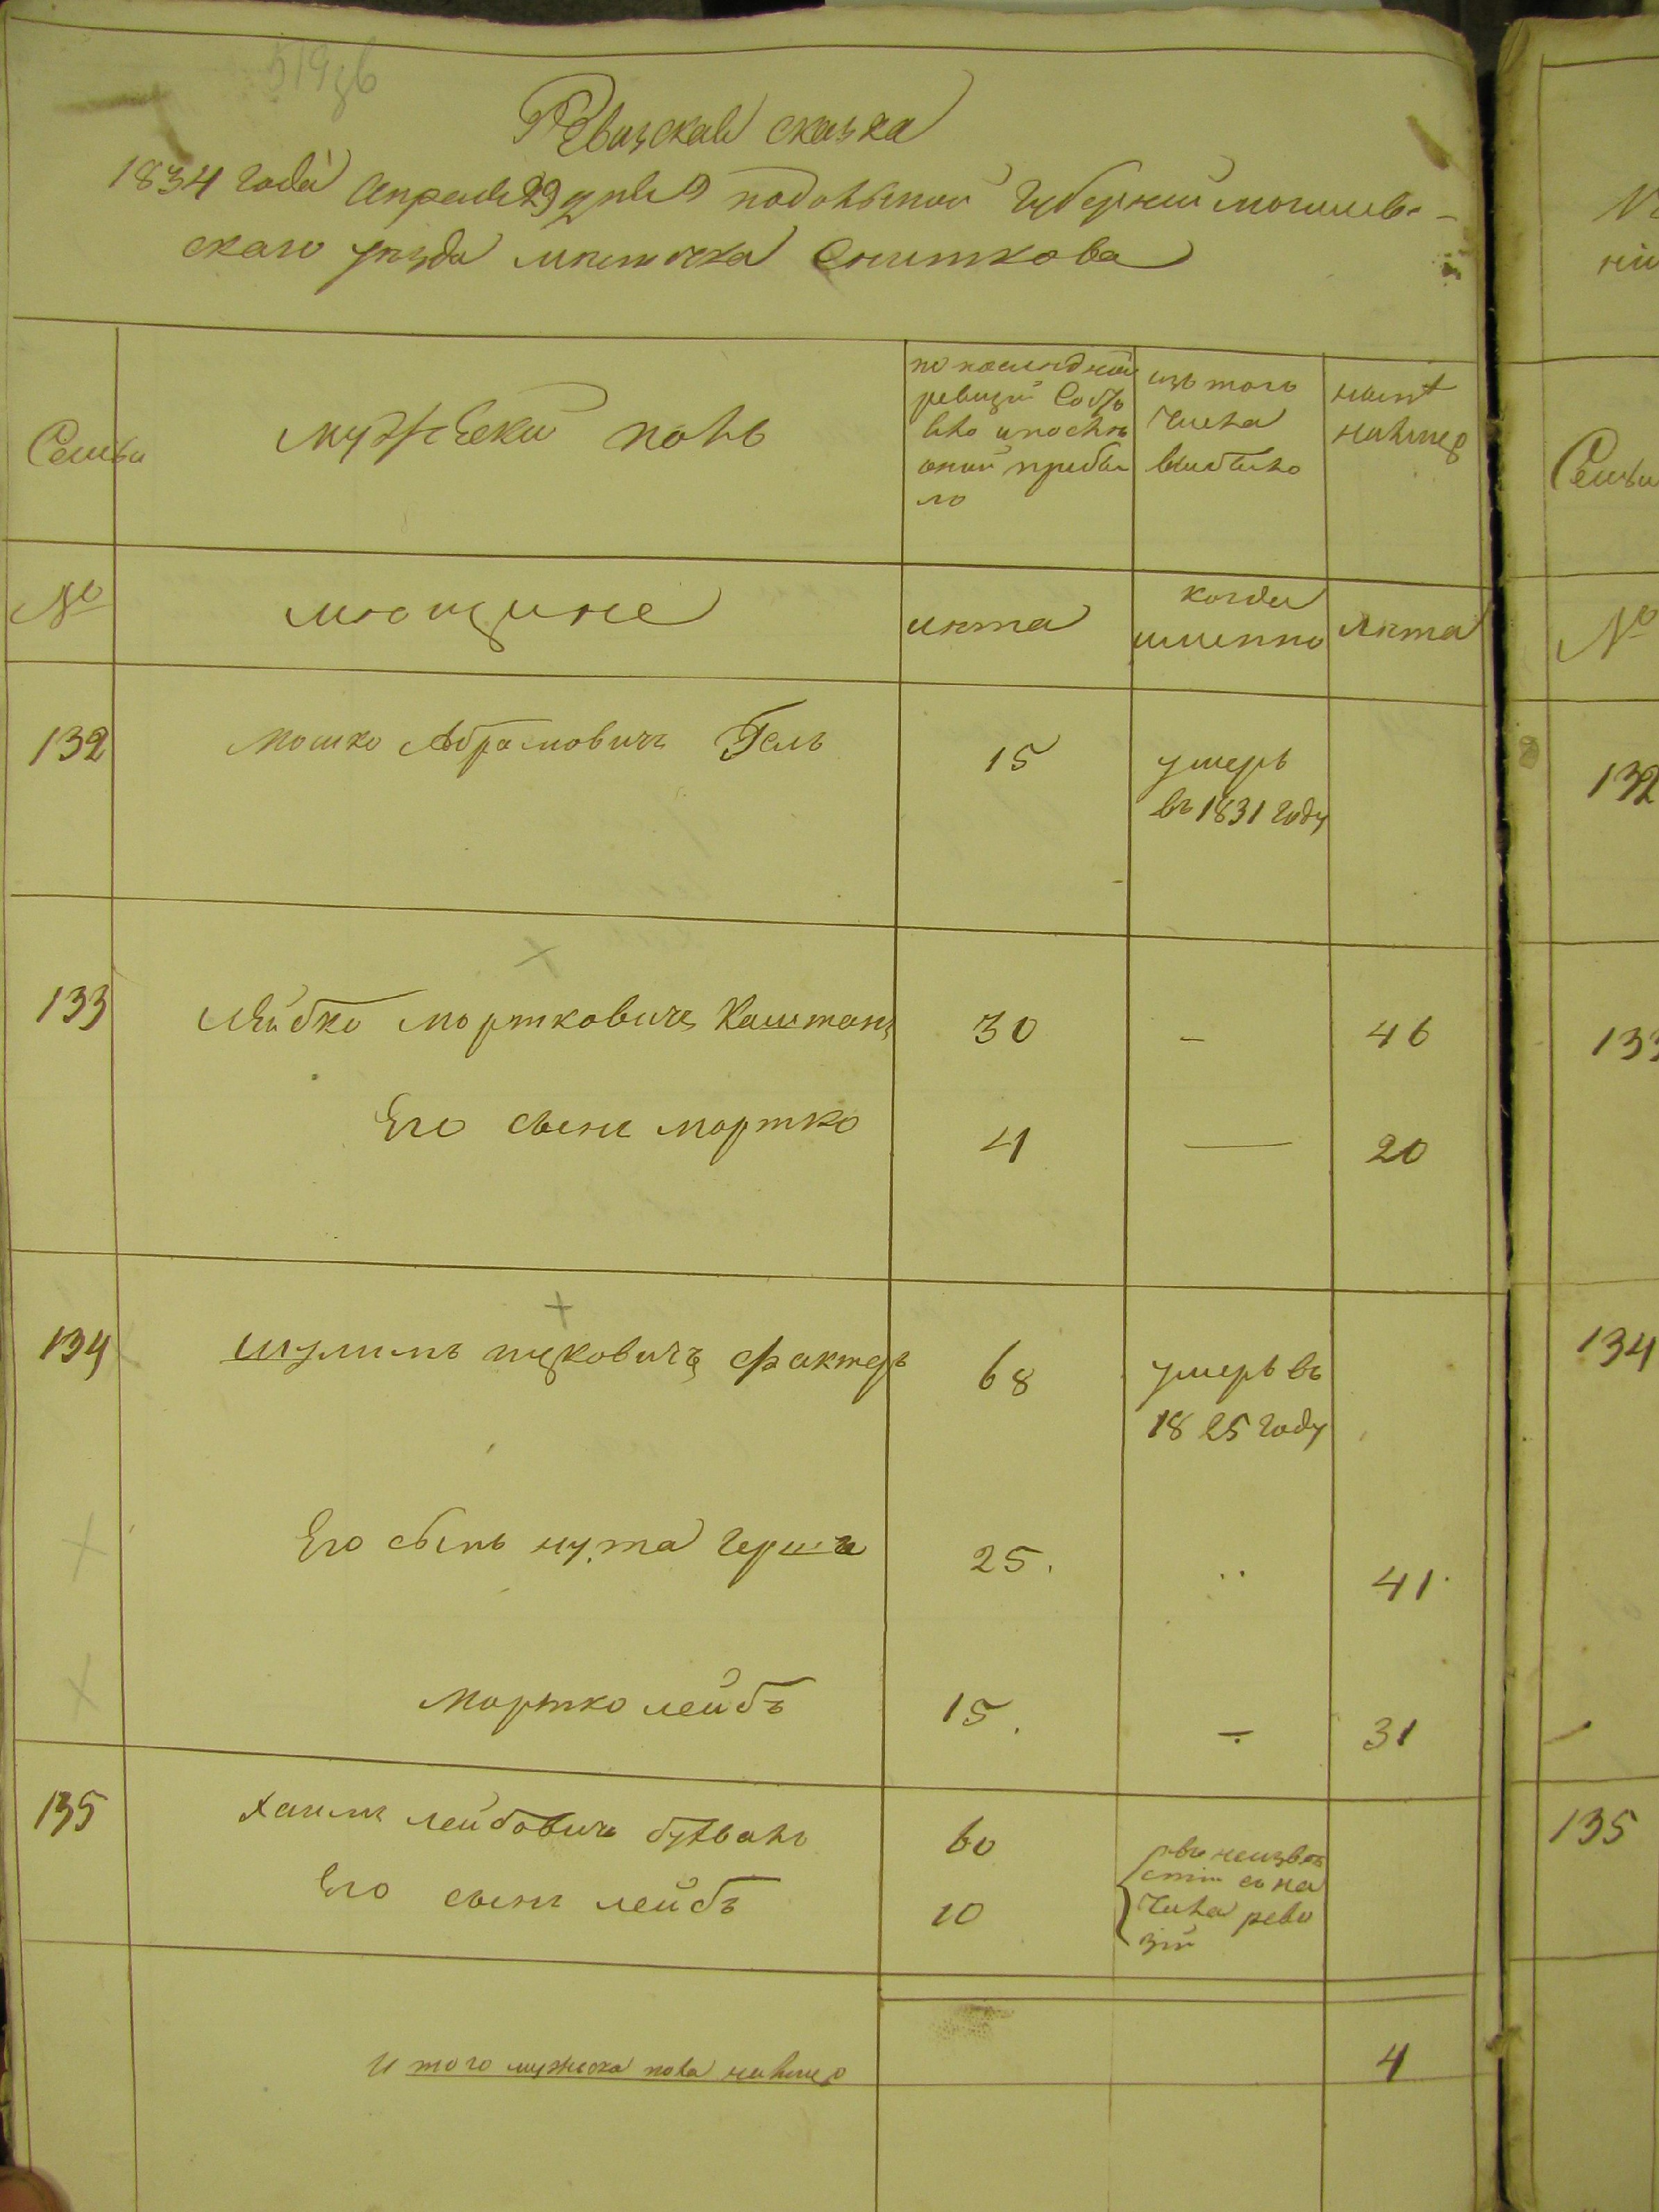 519зв
Ревизская сказка
1834 года Апреля 29 дня Подольской Губернии могилев-
скаго уезда местечка Сниткова
Семьи
мужеской полъ
по последней
ревизии состоя
ло и после
оной прибы
ло
изъ того
числа
выбыло
ныне
налицо
№
мещане
лета
когда
именно
лета
132
Мошко Абрамовичъ Гель
15
умеръ
въ 1831 году
133
Лейбко Мортковичъ Каштанъ
30
-
46
Его сынъ мортко
4
—
20
134
Шулимъ ицковичъ фактеръ
68
умеръ въ
1825 году
Его сынъ нута гершъ
25.
..
41.
Мортко лейбъ
15.
31
135
Хаимъ лейбовичъ
60
Его сынъ лейбъ
10
въ неизве
стии съ на
чала реви
зии
Итого мужеска пола налицо
4
Семьи
№
132
133
134
135